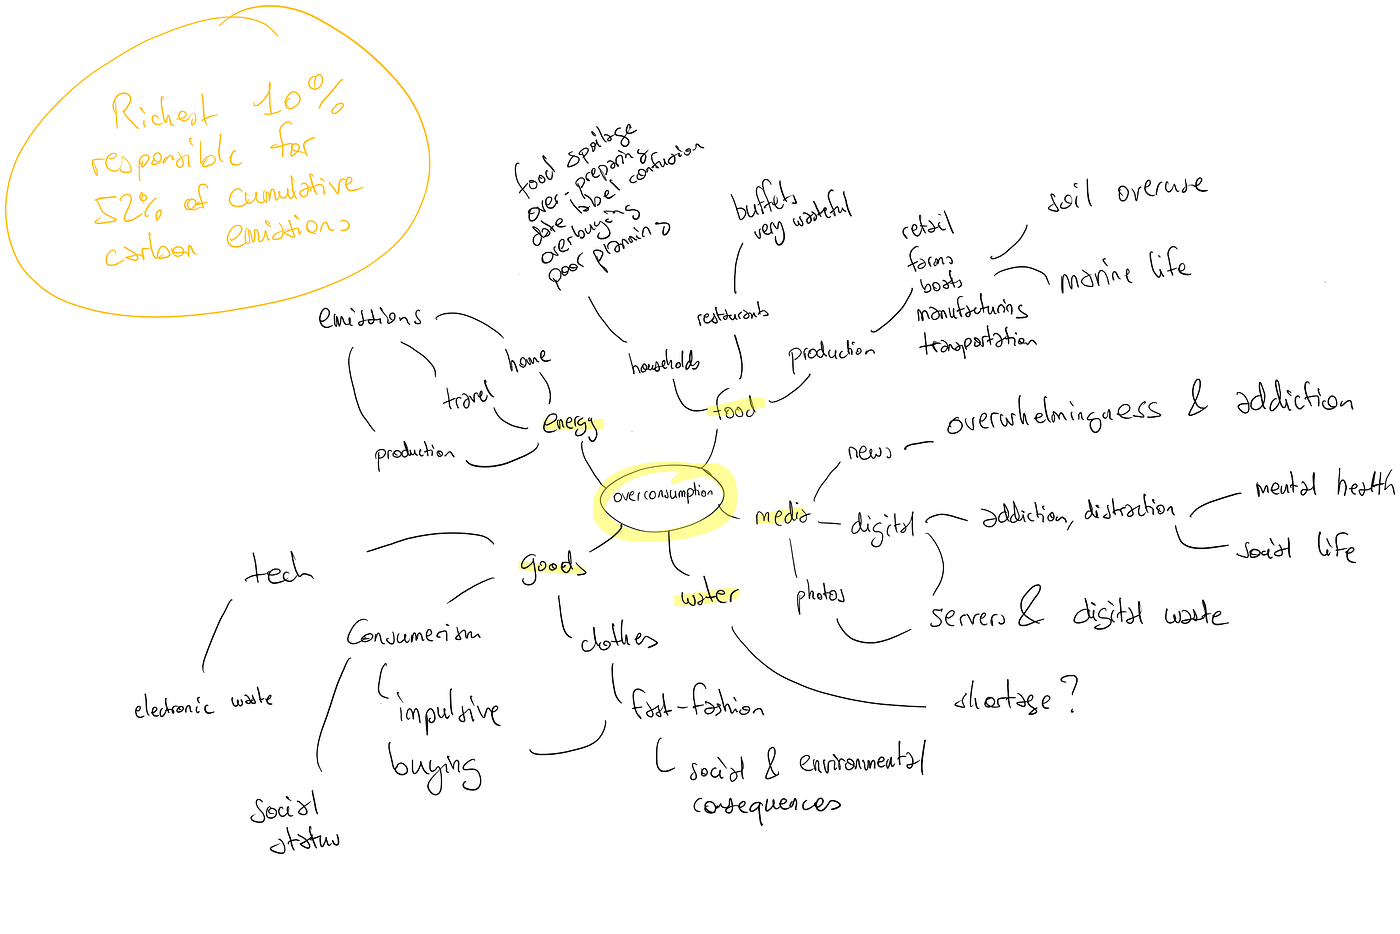 Richest 10%
responsible for
52% of cumulative
carbon emissions
food spoilage
over-preparing
date label confusion
overbuying
poor planning
buffets
very wasteful
retail
farms
boats
manufacturing
transportation
soil overuse
marine life
emissions
home
travel
production
energy
households
restaurants
production
food
overconsumption
media
news
overwhelmingness & addiction
digital
addiction, distraction
mental health
social life
photos
servers & digital waste
water
shortage?
goods
tech
electronic waste
Consumerism
impulsive
buying
social
status
clothes
fast-fashion
social & environmental
consequences